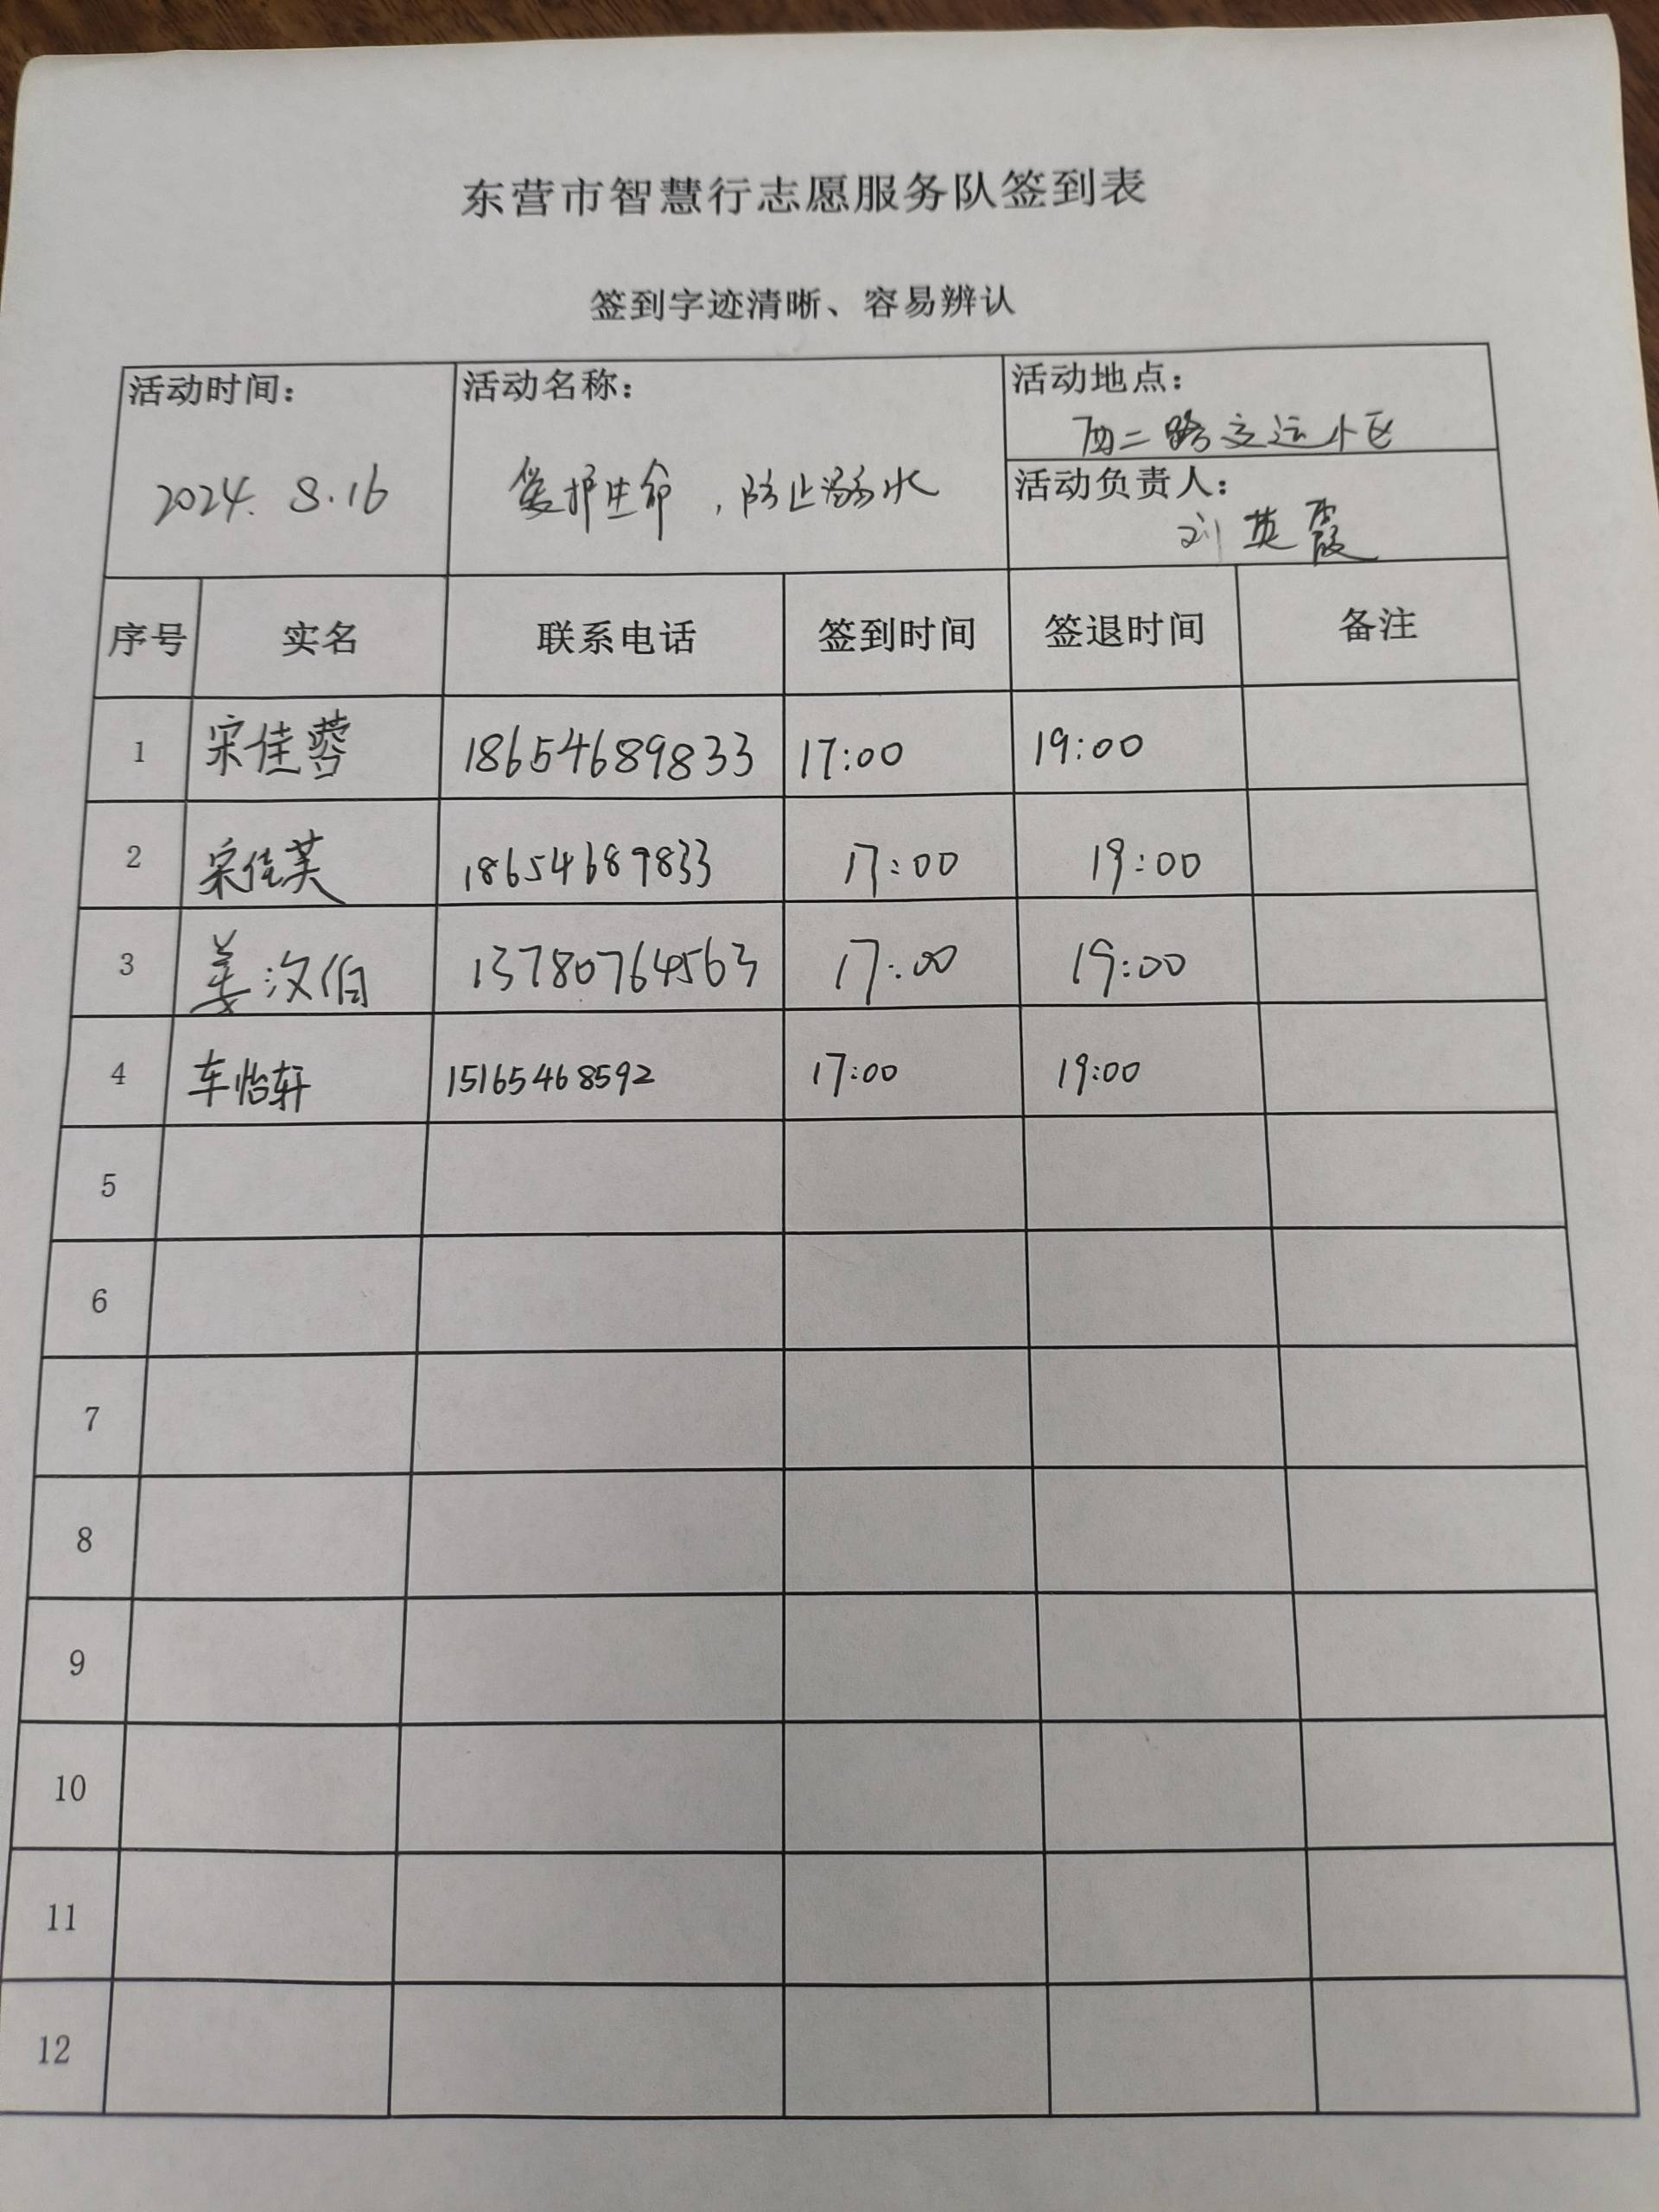 东营市智慧行志愿服务队签到表
签到字迹清晰、容易辨认
活动时间： 活动名称： 活动地点：
西二路交运小区
2024. 8.16 爱护生命，防止溺水
活动负责人：
刘英霞
序号 实名 联系电话 签到时间 签退时间 备注
1 宋佳蓉 18654689833 17:00 19:00
2 宋佳芙 18654689833 17:00 19:00
3 姜汶伯 13780764563 17:00 19:00
4 车怡轩 15165468592 17:00 19:00
5
6
7
8
9
10
11
12